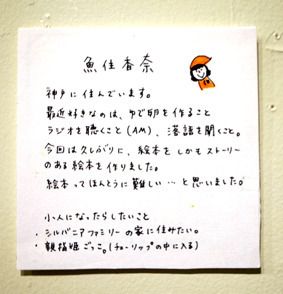 魚住香奈
神戸に住んでいます。
最近好きなのは、ゆで卵を作ること
ラジオを聴くこと(AM)、落語を聞くこと。
今回は久しぶりに、絵本を しかもストーリー
のある絵本を作りました。
絵本ってほんとうに難しい…と思いました。
小人になったらしたいこと
・シルバニアファミリーの家に住みたい。
・親指姫ごっこ。(チューリップの中に入る)